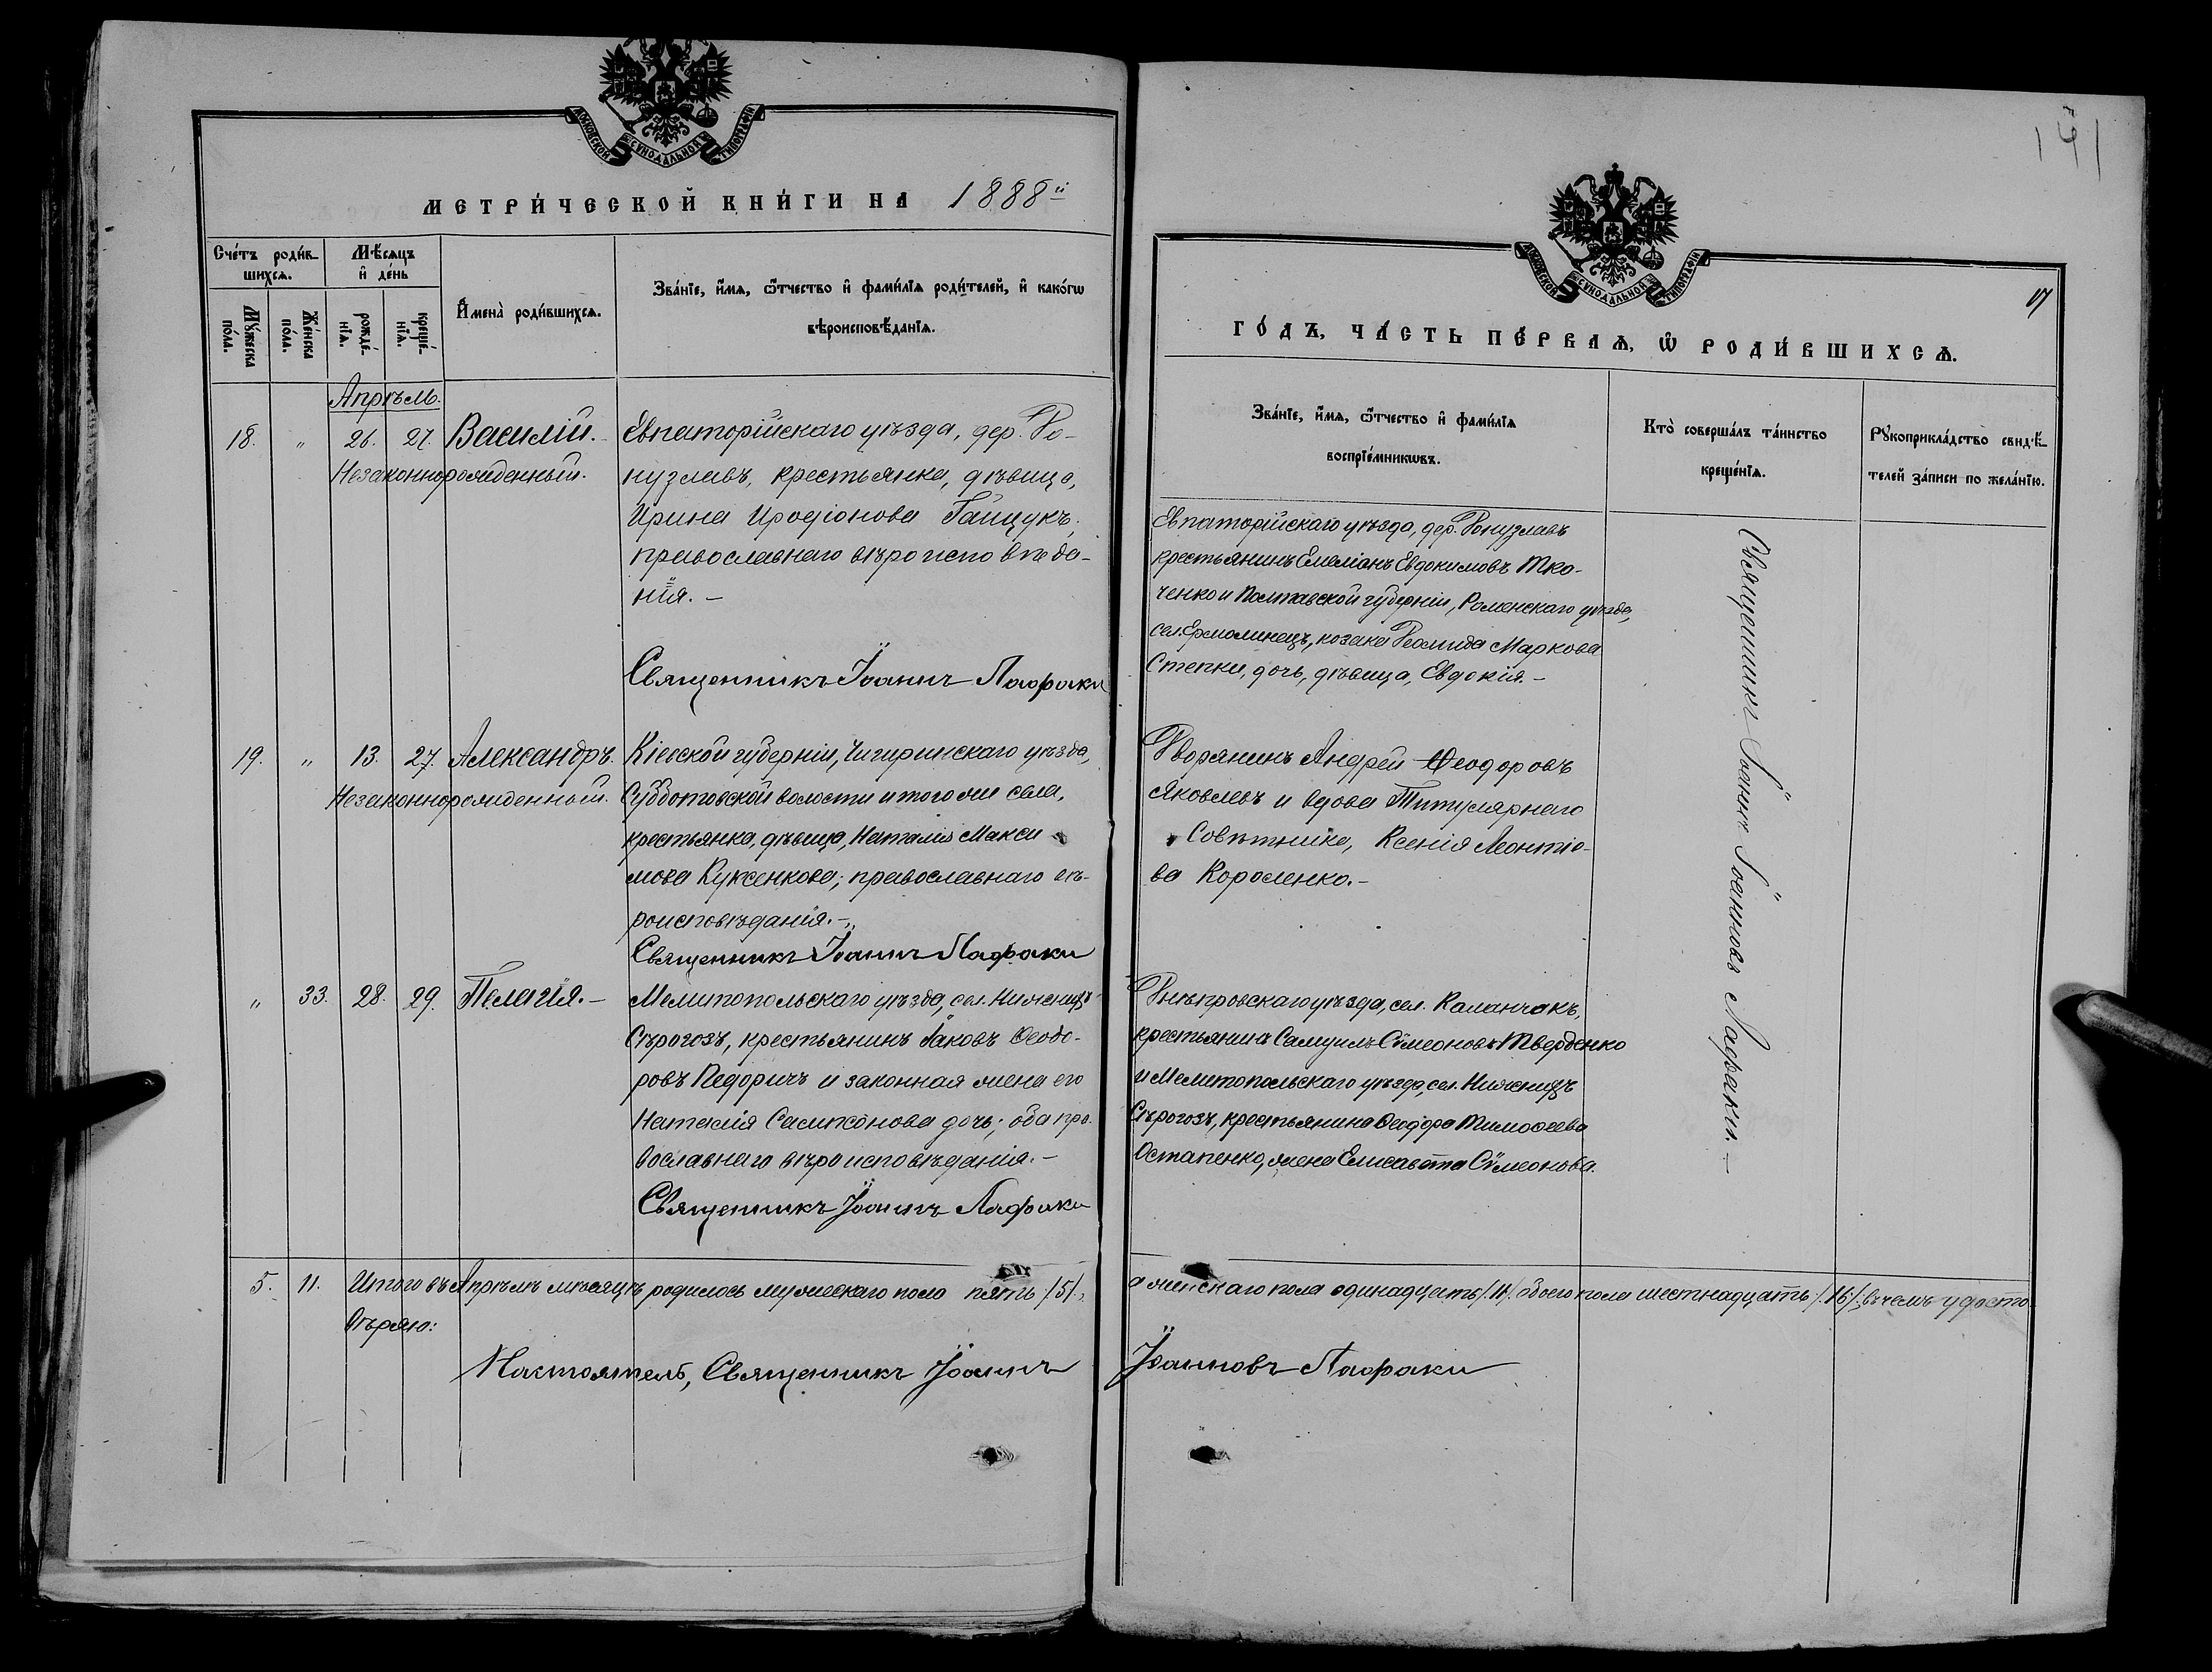 МОСКОВСКОЙ СѴНОДАЛЬНОЙ ТИПОГРАФІИ
МЕТРИ́ЧЕСКОЙ КНИ́ГИ НА 1888й
Сче́тъ роди́в-
шихсѧ.
Мѣ́сѧцъ
и҆ де́нь
Мꙋ́жеска
по́ла.
Же́нска
по́ла.
рожде́-
нїѧ.
креще́-
нїѧ.
И҆мена̀ роди́вшихсѧ.
Зва́нїе, и҆́мѧ, ѻ҆́тчество и҆ фами́лїѧ роди́телей, и҆ како́гѡ
вѣроисповѣ́данїѧ.
Апрѣль.
18. " 26. 27. Василій.-
Незаконнорожденный.
Евпаторійскаго уѣзда, дер. До-
нузлавъ, крестьянка, дѣвица,
Ирина Иродіонова Гайцукъ;
православнаго вѣроисповѣда-
нія.-
Священникъ Іоаннъ Лафаки
19. " 13. 27. Александръ.
Незаконнорожденный.
Кіевской губерніи, Чигиринскаго уѣзда,
Субботовской волости и того же села,
крестьянка, дѣвица, Наталія Макси
мова Куксенкова; православнаго вѣ-
роисповѣданія.-
Священникъ Іоаннъ Лафаки
" 33. 28. 29. Пелагія.-
Мелитопольскаго уѣзда, сел. Нижнихъ
Сѣрогозъ, крестьянинъ Іаковъ Ѳеодо-
ровъ Педоричъ и законная жена его
Наталія Сампсонова дочь; оба пра-
вославнаго вѣроисповѣданія.-
Священникъ Іоаннъ Лафаки
5. 11. Итого въ Апрѣлѣ мѣсяцѣ родилось мужескаго пола пять /5/,
вѣряю:
Настоятель, Священникъ Іоаннъ
141
17
МОСКОВСКОЙ СѴНОДАЛЬНОЙ ТИПОГРАФІИ
ГО́ДЪ, ЧА́СТЬ ПЕ́РВАѦ, Ѡ҆ РОДИ́ВШИХСѦ.
Зва́нїе, и҆́мѧ, ѻ҆́тчество и҆ фами́лїѧ
воспрїе́мникѡвъ.
Кто̀ соверша́лъ та́инство
креще́нїѧ.
Рꙋкоприкла́дство свидѣ́-
телей за́писи по жела́нїю.
Евпаторійскаго уѣзда, дер. Донузлавъ
крестьянинъ Емеліанъ Евдокимовъ Тка-
ченко и Полтавской губерніи, Роменскаго уѣзда,
сел. Ермолинецъ, козака Леонида Маркова
Степки, дочь, дѣвица, Евдокія.-
Дворянинъ Андрей Ѳеодоровъ
Яковлевъ и вдова Титулярнаго
Совѣтника, Ксенія Леонтіе-
ва Короленко.-
Днѣпровскаго уѣзда, сел. Каланчакъ,
крестьянинъ Самуилъ Сѵмеоновъ Тверденко
и Мелитопольскаго уѣзда, сел. Нижнихъ
Сѣрогозъ, крестьянина Ѳеодора Тимоѳеева
Остапенко, жена Елисавета Сѵмеонова.
Священникъ Іоаннъ Іоанновъ Лафаки.-
а женскаго пола одинадцать /11/. обоего пола шестнадцать /16/; въ чемъ удосто
Іоанновъ Лафаки